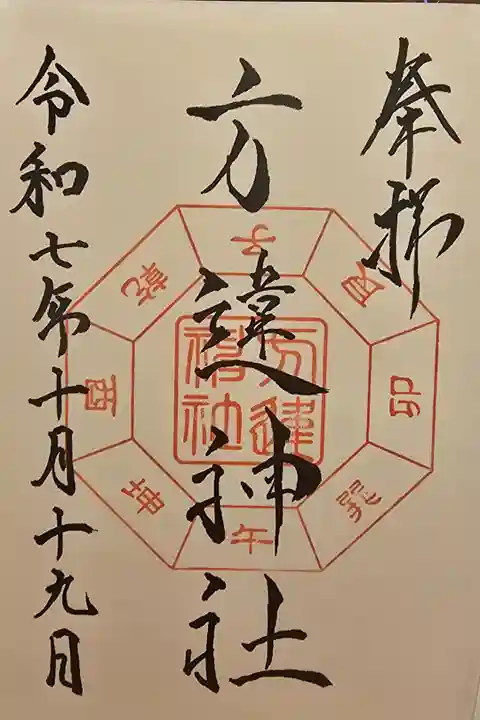 奉拝
方違神社
令和七年十月十九日
子
艮
卯
巽
午
坤
酉
乾
方違
神社